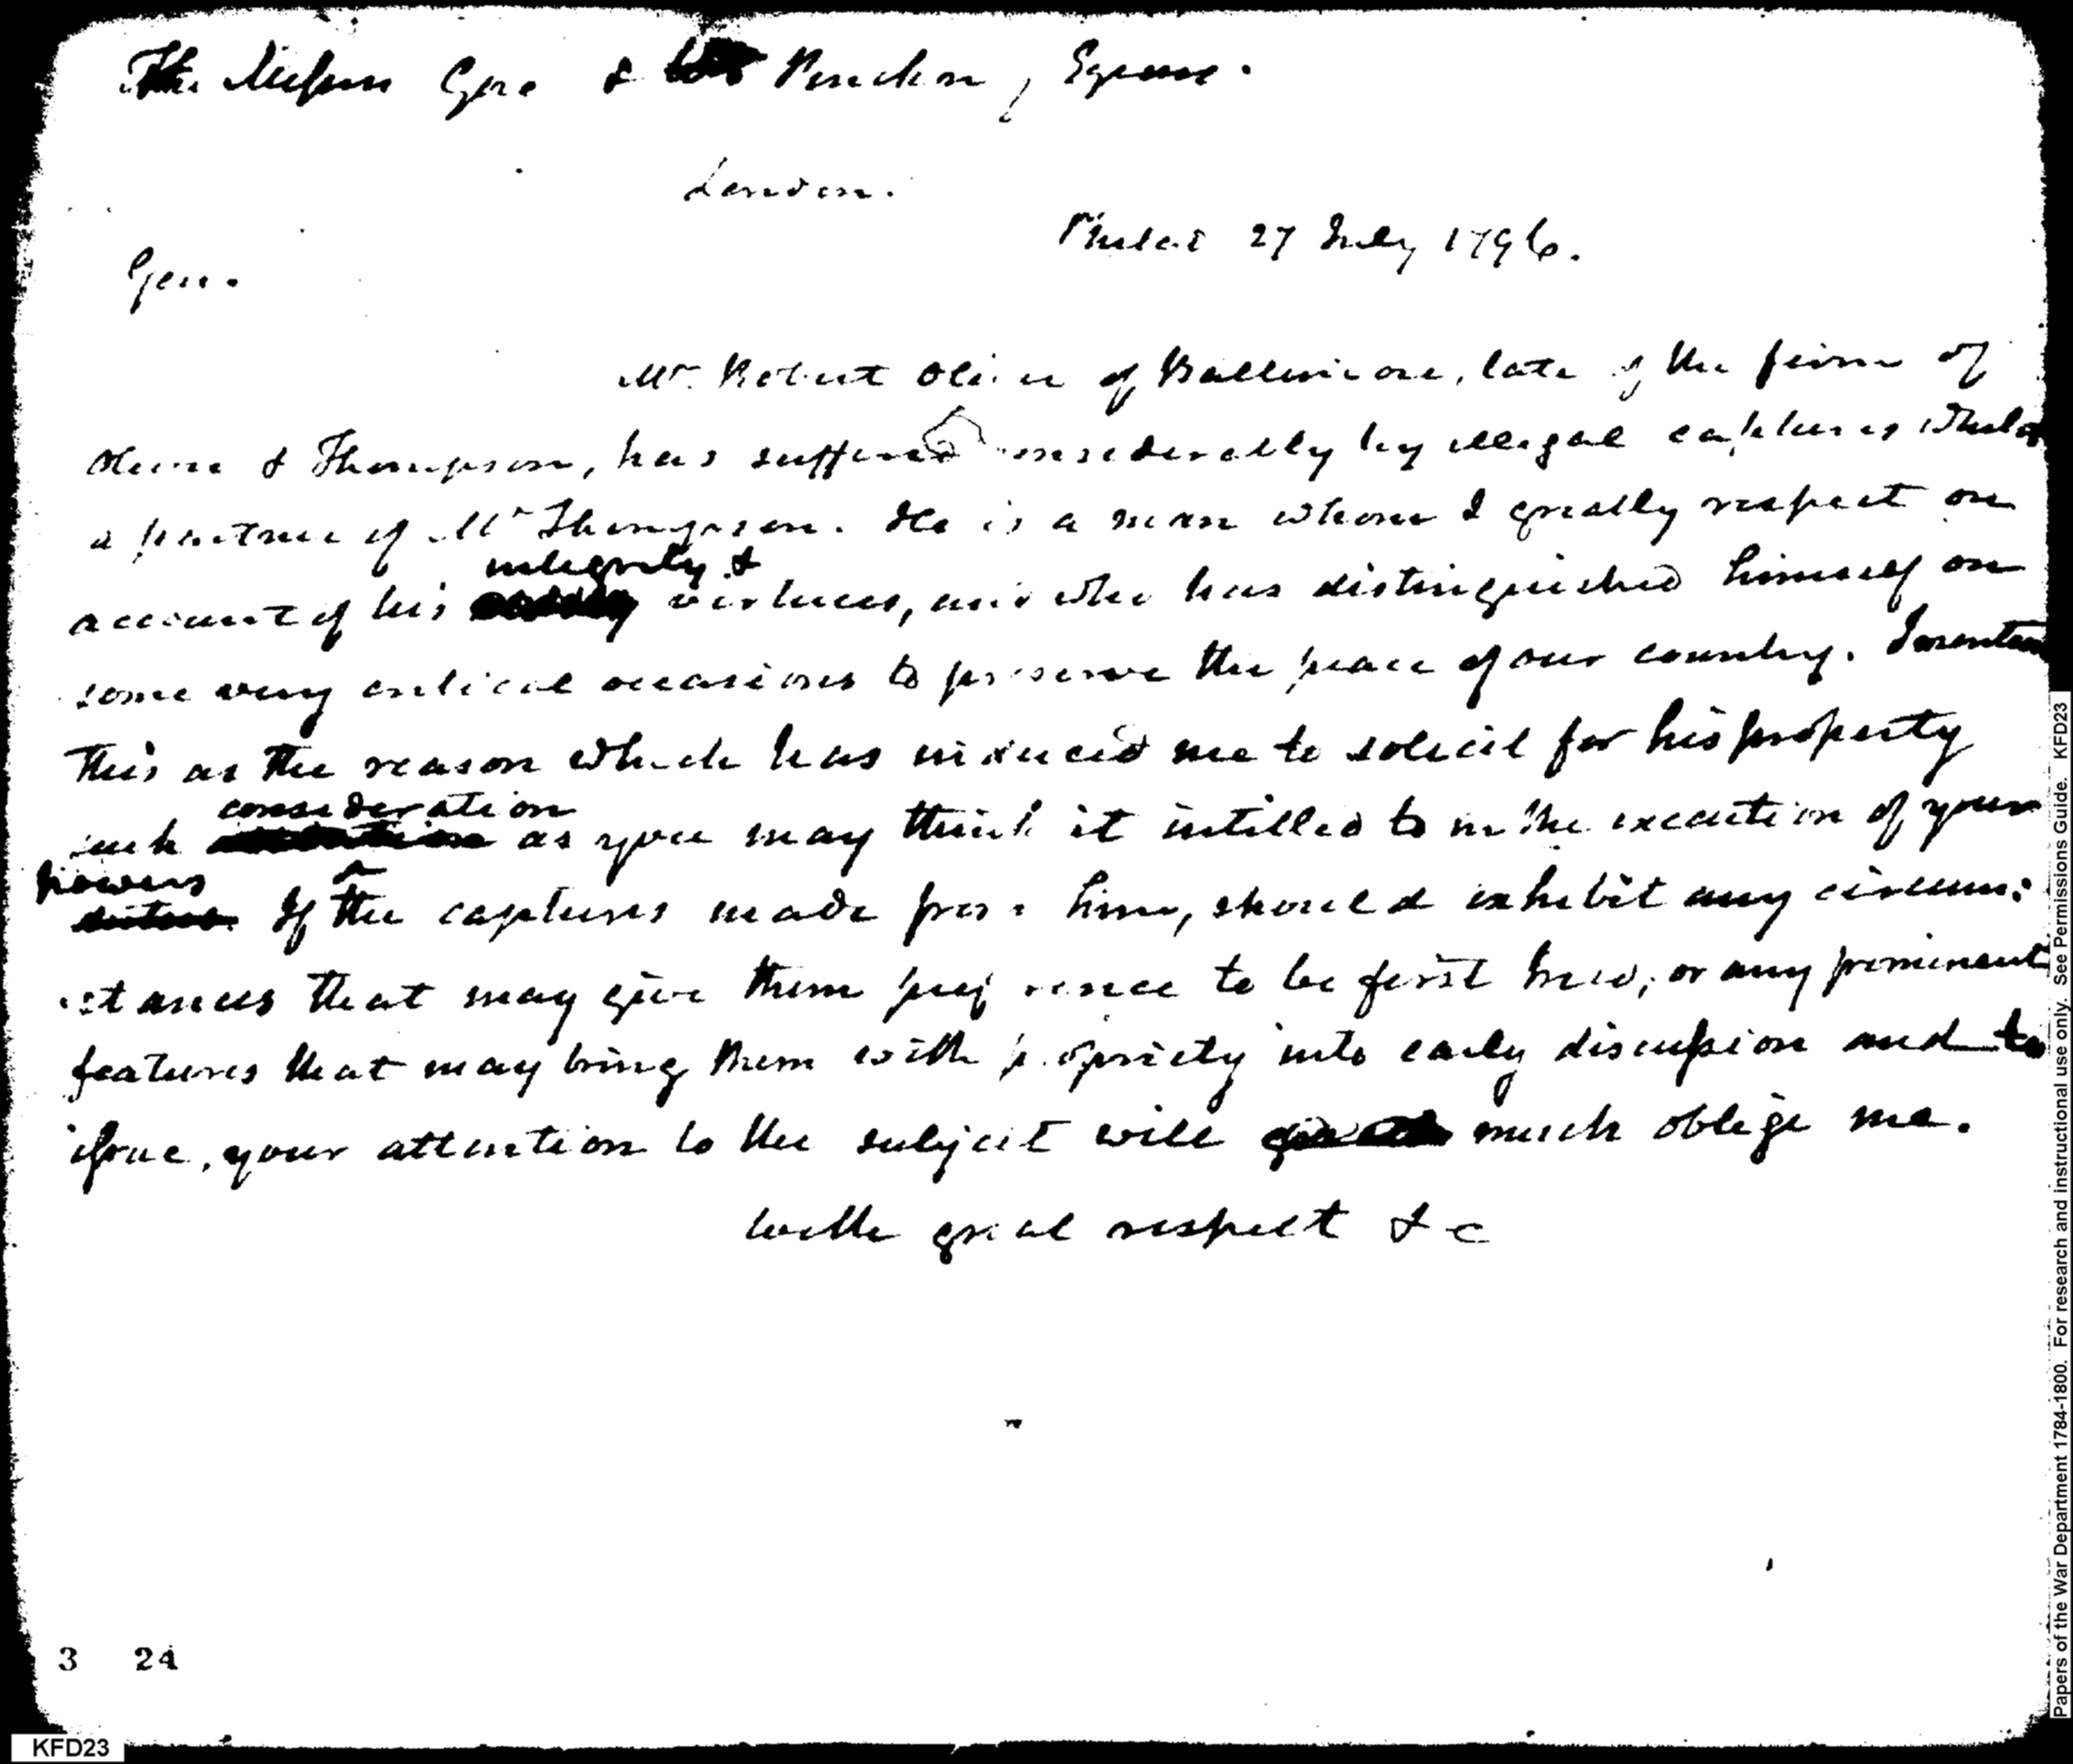 The Messrs Gore & Pinckn, Esqrs.
London.
Philad 27 July 1796.
Gen.
Mr. Robert Oliver of Baltimore, late of the firm of
Oliver & Thompson, has suffered considerably by illegal captures whilst
a partner of Mr Thompson. He is a man whom I greatly respect on
integrity &
account of his virtues, and who has distinguished himself on
some very critical occasions to preserve the peace of our country. I mention
this as the reason which has induced me to solicit for his property
consideration
such attention as you may think it intitled to in the execution of your
powers
duties. If the captures made from him, should exhibit any circum:
stances that may give them preference to be first tried, or any prominent
features that may bring them with propriety into early discussion and to
issue, your attention to the subject will much oblige me.
With great respect &c
3 24
KFD23
Papers of the War Department 1784-1800. For research and instructional use only. See Permissions Guide. KFD23